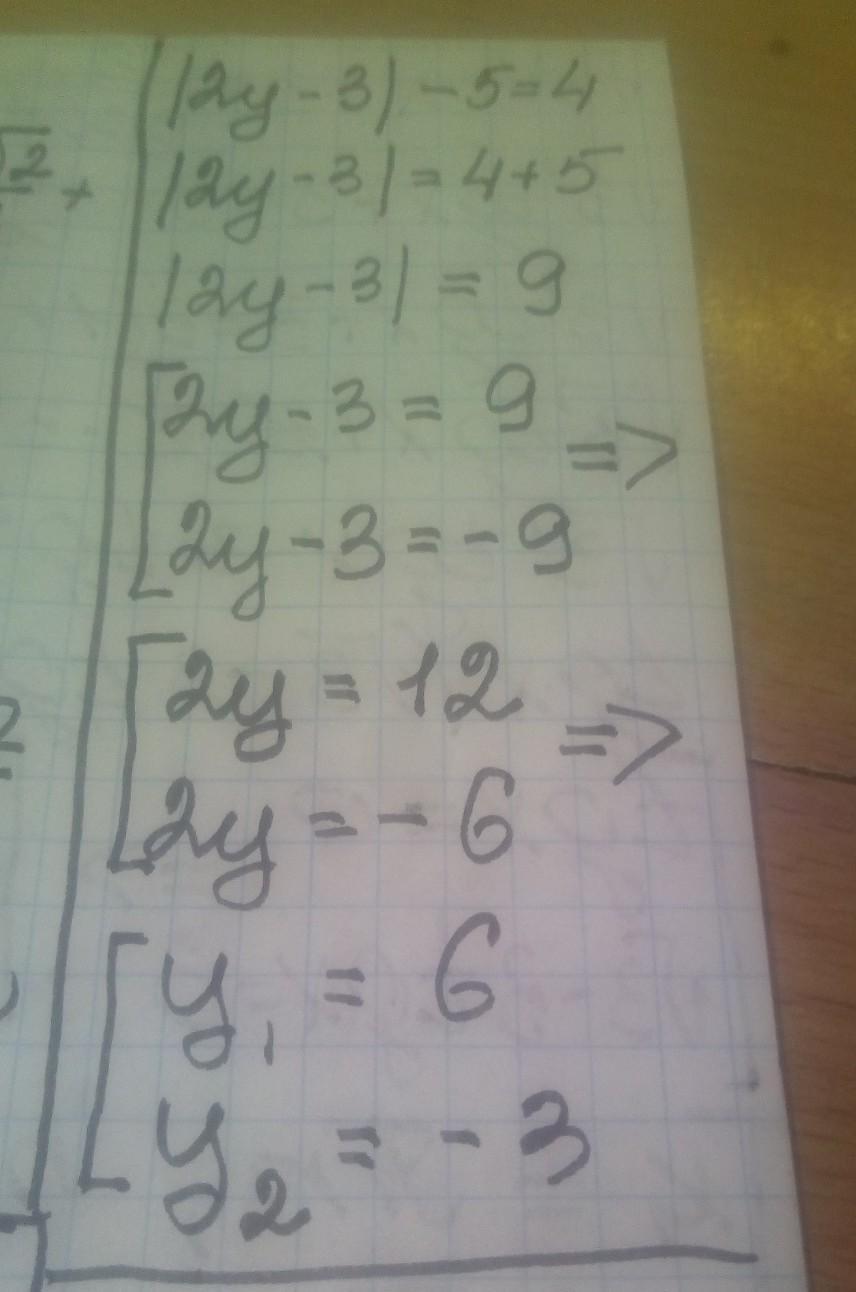 |2y - 3| - 5 = 4
|2y - 3| = 4 + 5
|2y - 3| = 9
[2y - 3 = 9
=>
2y - 3 = - 9
[2y = 12
=>
2y = - 6
[y₁ = 6
y₂ = - 3
√2
+
2